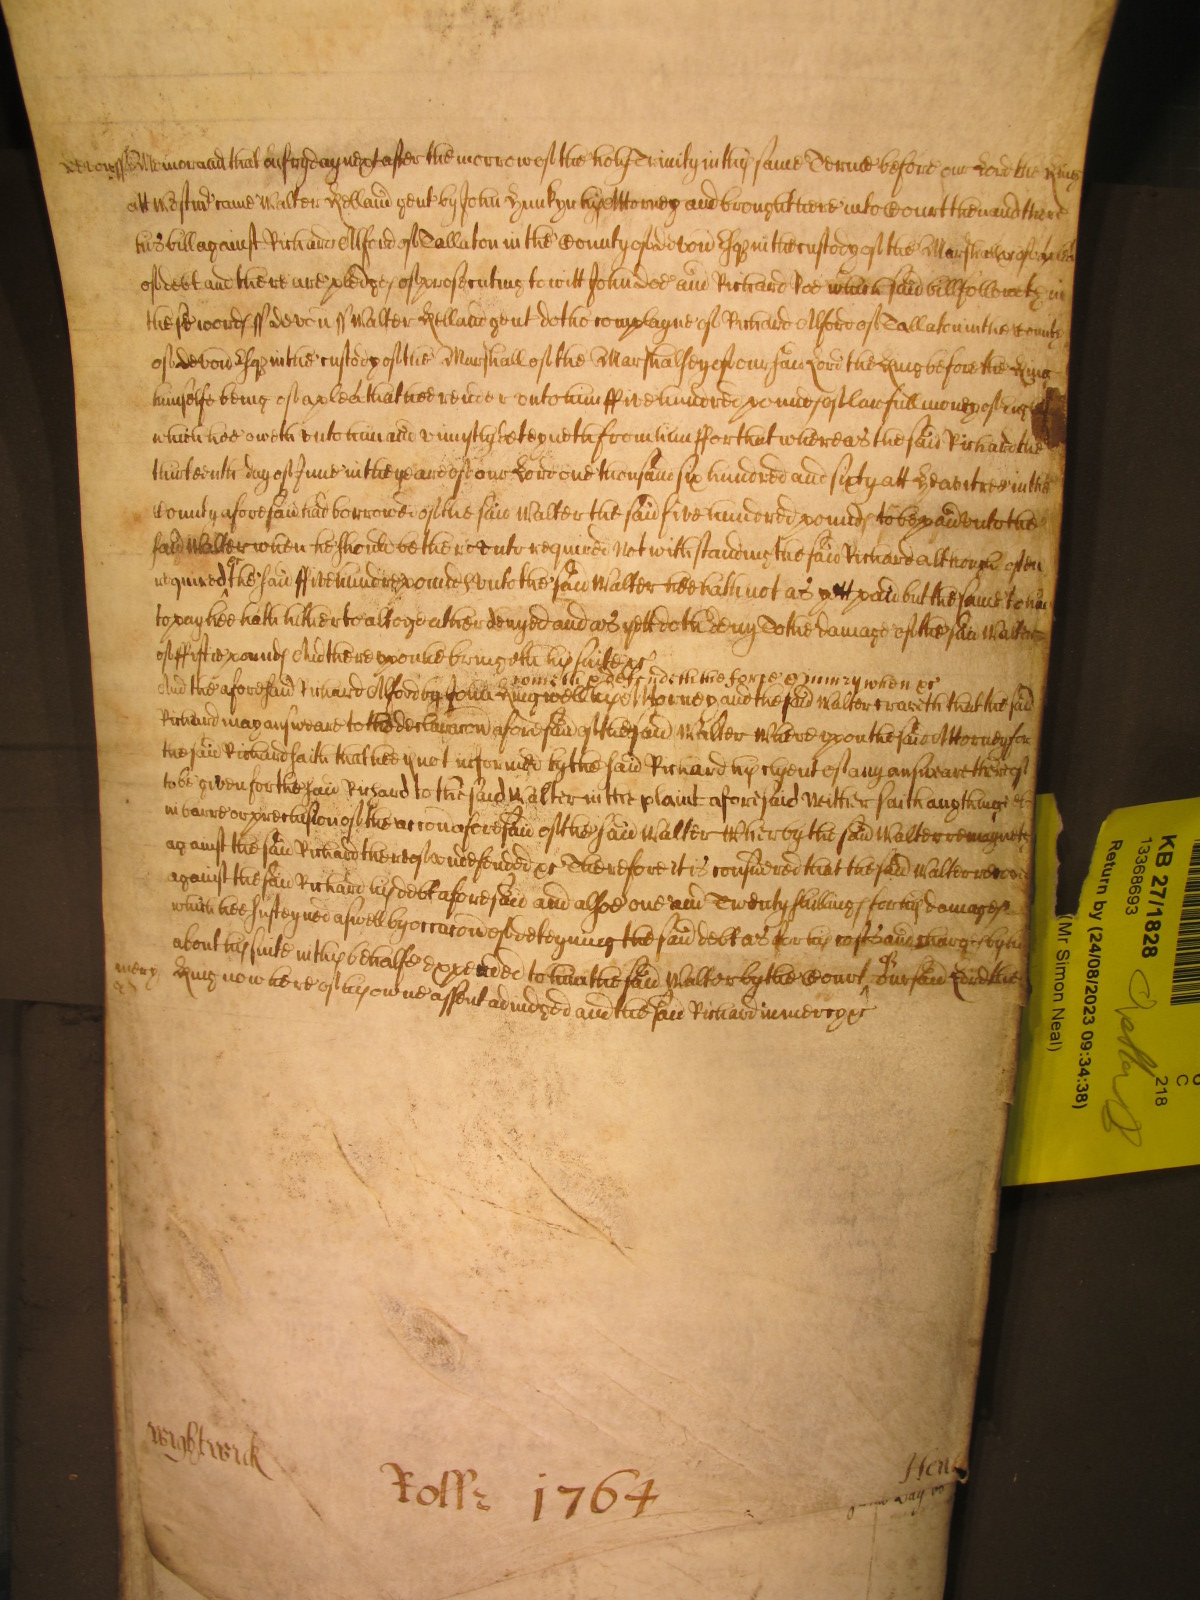 Devon ss Memorand that on fryday next after the morrow of the holy Trinity in this same Terme before our Lord the King
att Westmr came Walter Kelland gent by John Hunkyn his Attorney and brought here into Court then and there
his bill against Richard Alford of Tallaton in the County of Devon Esqr in the custody of the Marshall &c of a plea
of debt and there are pledges of prosecuting to witt John Doe and Richard Roe which said bill followeth in
these words ss Devon ss Walter Kelland gent doth complayne of Richard Alford of Tallaton in the County
of Devon Esqr in the custody of the Marshall of the Marshalsey of our said Lord the King before the King
himselfe being of a plea that hee render unto him ffive hundred pounds of lawfull money of England
which hee oweth unto him and uniustly deteyneth from him ffor that whereas the said Richard the
thirteenth day of June in the yeare of our Lord one thousand six hundred and sixty att Heavitree in the
County aforesaid had borrowed of the said Walter the said five hundred pounds to be paid unto the
said Walter when he should be thereunto required Notwithstanding the said Richard although often
required the said ffive hundred pounds unto the said Walter hee hath not as yett paid but the same to him
to pay hee hath hitherto altogeather denyed and as yett doth deny To the damage of the said Walter
of ffiftie pounds And thereupon he bringeth his suite &c
cometh & defendeth the force & iniury when &c
And the aforesaid Richard Alford by John Ringwell his Attorney and the said Walter craveth that the said
Richard may answeare to the declaracon aforesaid of the said Walter Whereupon the said Attorney for
the said Richard saith that hee is not informed by the said Richard his clyent of any answeare thereof
to be given for the said Richard to the said Walter in the plaint aforesaid Neither saith any thinge els
in barre or preclusion of the accon aforesaid of the said Walter Wherby the said Walter remayneth
against the said Richard thereof undefended &c Therefore it is considered that the said Walter recover
against the said Richard his debt aforesaid and alsoe one and Twenty shillings for his damages
which hee susteyned aswell by occacon of deteyning the said debt as for his costs and charges by him
about his suite in this behalfe expended to him the said Walter by the Court of our said Lord the
mercy King now here of his owne assent adiudged and the said Richard in mercy &c
Wightwick
Rolls 1764
KB 27/1828
13368693
Return by (24/08/2023 09:34:38)
(Mr Simon Neal)
218
C